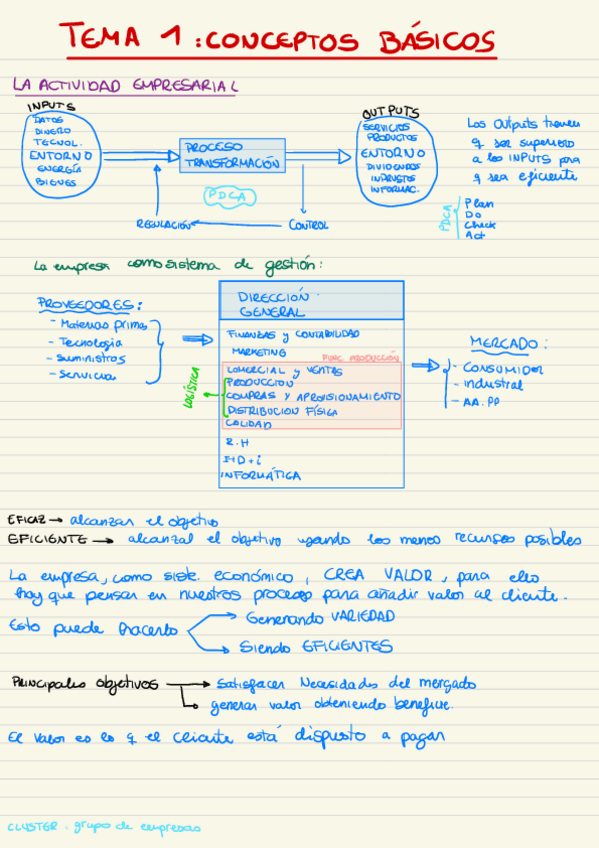 TEMA 1: CONCEPTOS BÁSICOS
LA ACTIVIDAD EMPRESARIAL
INPUTS
DATOS
DINERO
TECNOL.
ENTORNO
ENERGÍA
BIENES
PROCESO
TRANSFORMACIÓN
PDCA
REGULACIÓN
CONTROL
OUTPUTS
SERVICIOS
PRODUCTOS
ENTORNO
DIVIDENDOS
IMPUESTOS
INFORMAC.
Los outputs tienen
q ser superiores
a los INPUTS para
q sea eficiente
PDCA
Plan
Do
Check
Act
La empresa como sistema de gestión:
PROVEEDORES:
- Materias primas
- Tecnología
- Suministros
- Servicios
DIRECCIÓN
GENERAL
FINANZAS y CONTABILIDAD
MARKETING
FUNC. PRODUCCIÓN
COMERCIAL y VENTAS
PRODUCCION
COMPRAS y APROVISIONAMIENTO
DISTRIBUCION FÍSICA
CALIDAD
R.H
I+D+i
INFORMÁTICA
LOGÍSTICA
MERCADO:
- CONSUMIDOR
- industrial
- AA.PP
EFICAZ → alcanzar el objetivo
EFICIENTE → alcanzal el objetivo usando los menos recursos posibles
La empresa, como siste. económico, CREA VALOR, para ello
hay que pensar en nuestros procesos para añadir valor al cliente.
Esto puede hacerlo
Generando VARIEDAD
Siendo EFICIENTES
PRINCIPALES objetivos
→ Satisfacer Necesidades del mercado
→ generar valor obteniendo benefice.
El valor es lo q el cliente está dispusto a pagar
CLUSTER: grupo de empresas